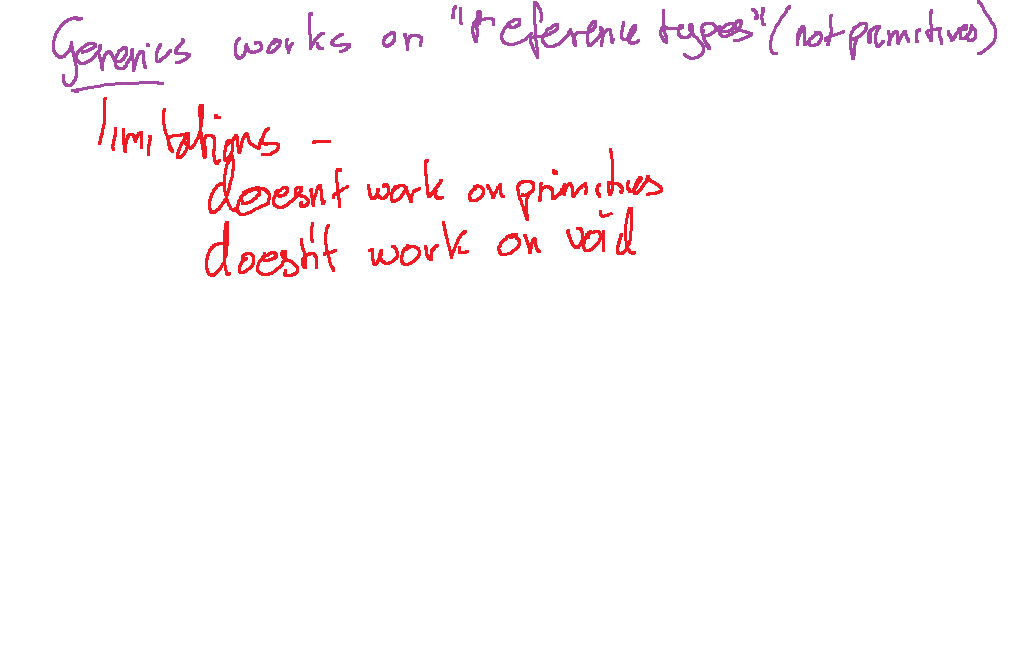 Generics works on "reference types" (not primitives)
limitations -
doesn't work on primitives
doesn't work on void